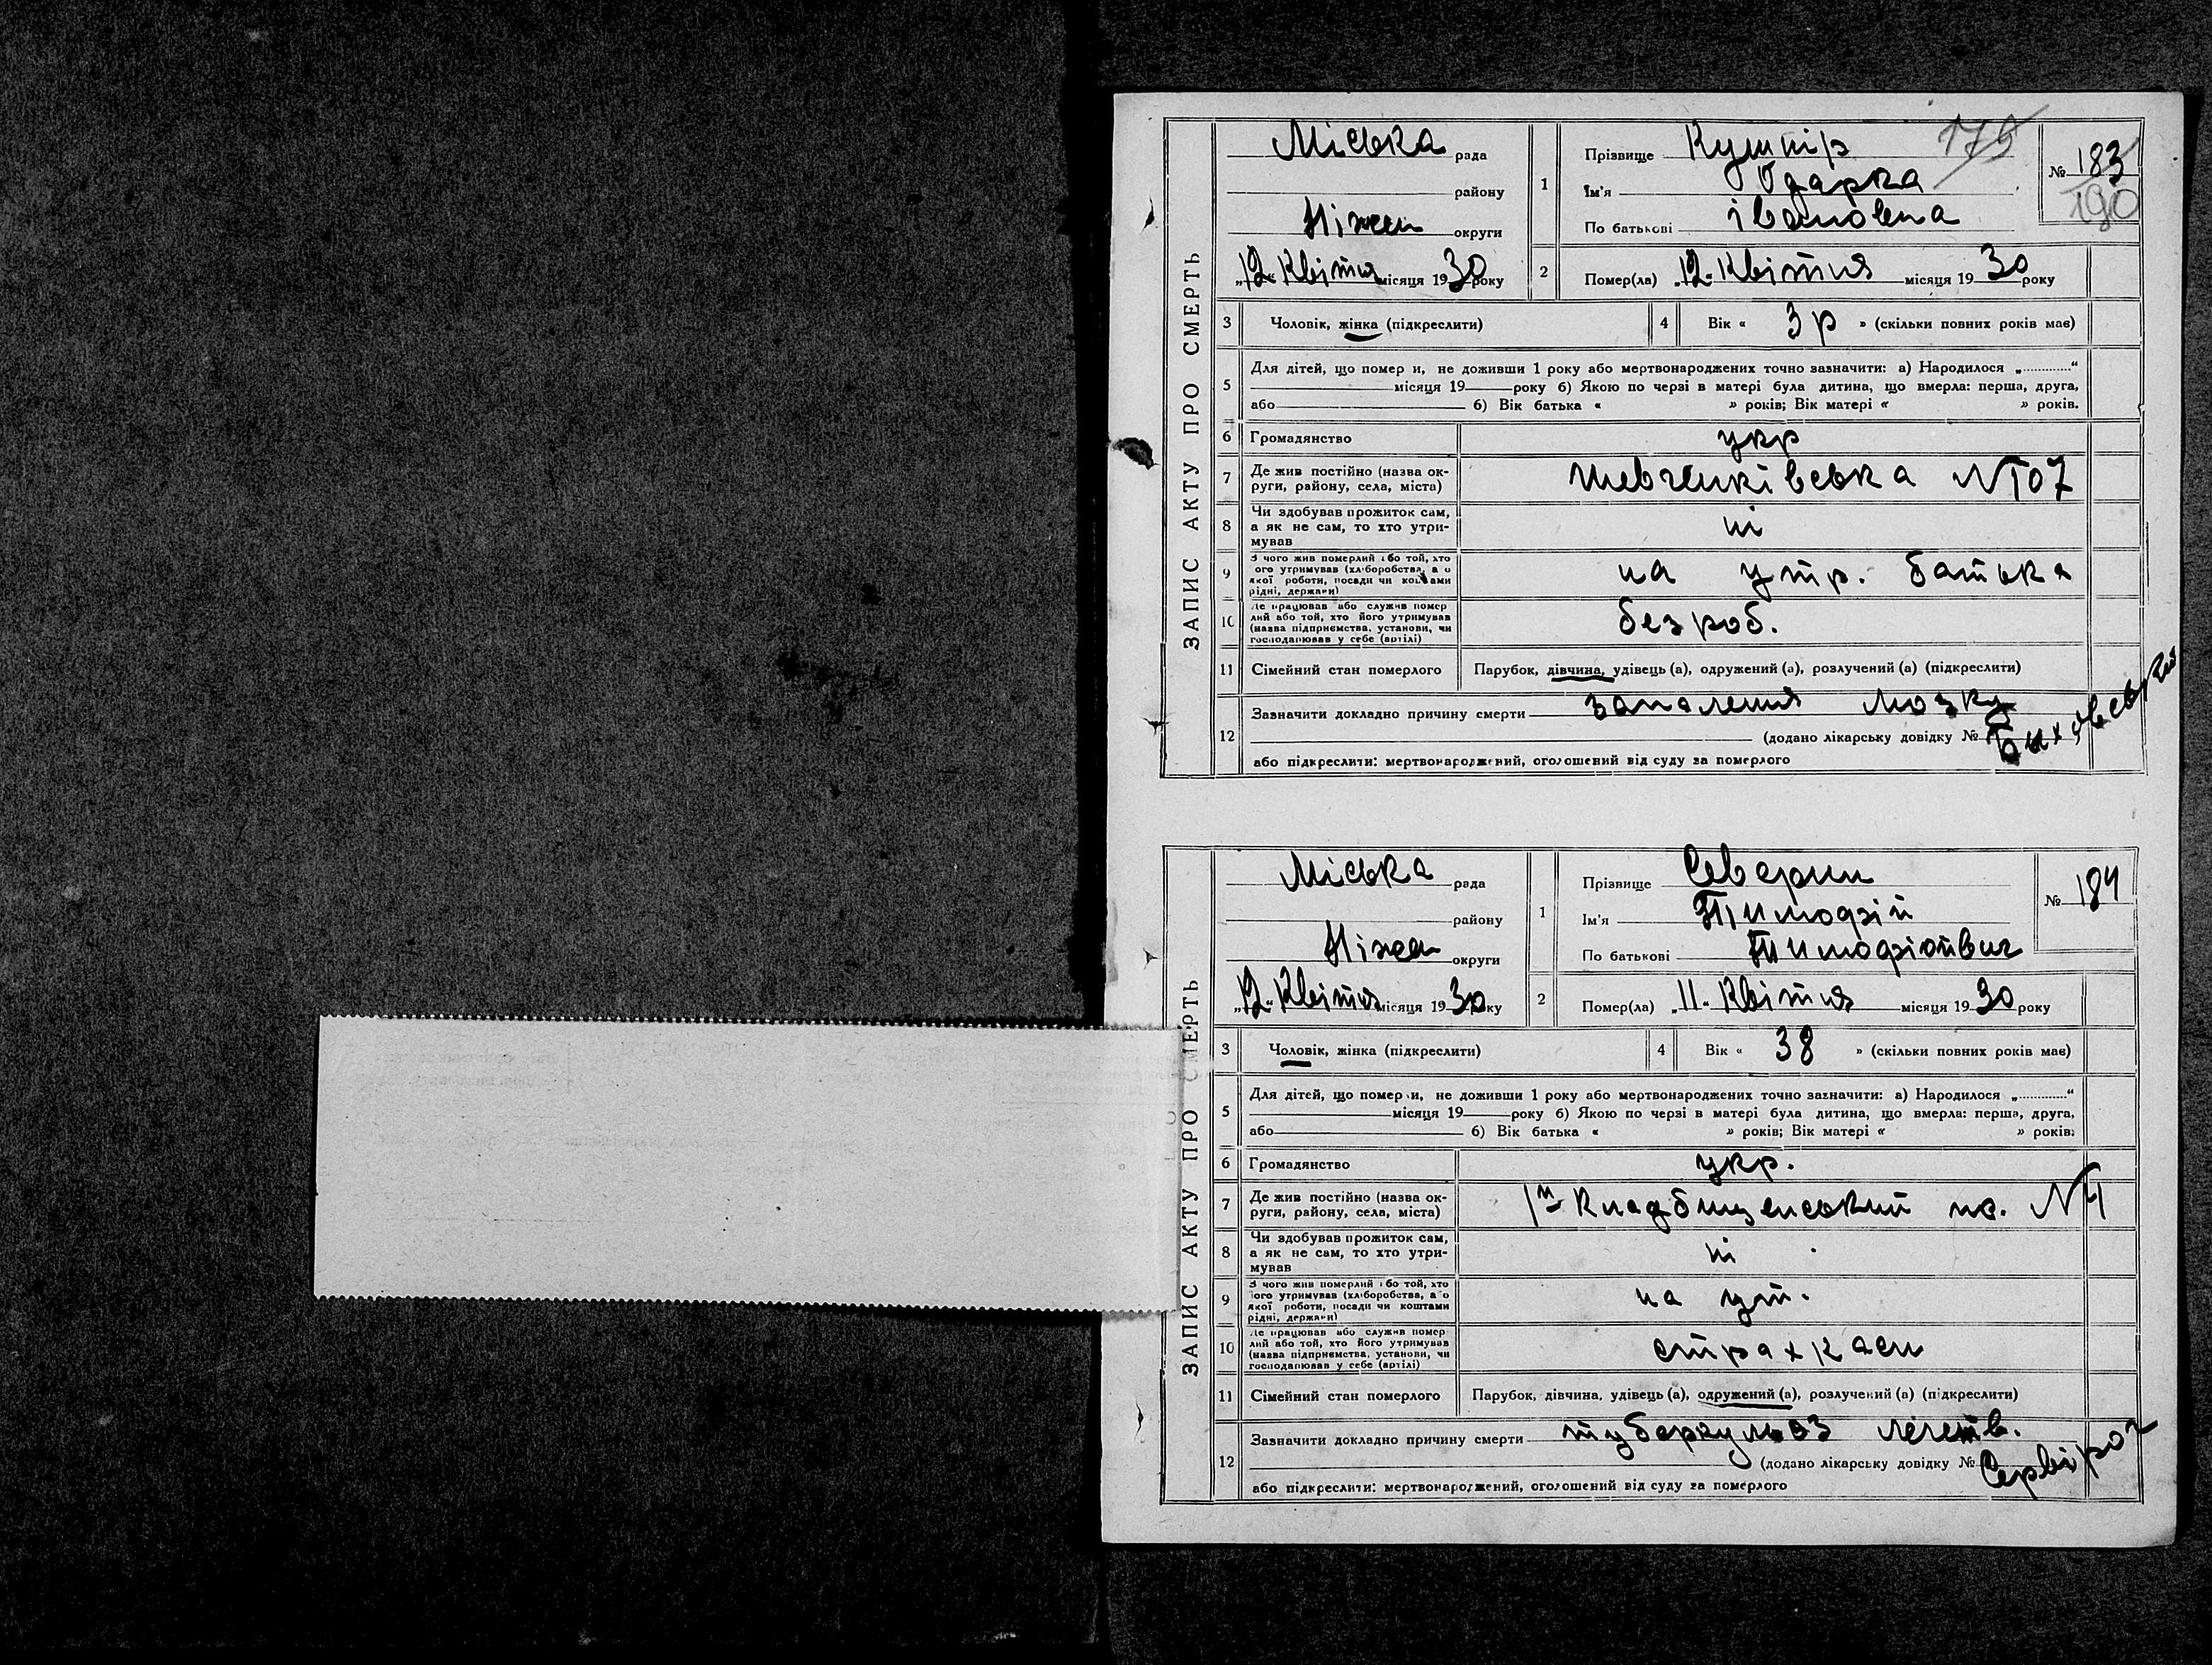 ЗАПИС АКТУ ПРО СМЕРТЬ
Міська рада
району
Ніжен округи
„12“ Квітня місяця 1930 року
1 Прізвище Кушнір
Ім'я Одарка
По батькові Івановна
175
№ 183
190
2 Помер(ла) „12“ Квітня місяця 1930 року
3 Чоловік, жінка (підкреслити)
4 Вік « 3 р » (скільки повних років має)
5 Для дітей, що помер и, не доживши 1 року або мертвонароджених точно зазначити: а) Народилося „............“
місяця 19 року б) Якою по черзі в матері була дитина, що вмерла: перша, друга,
або б) Вік батька « » років; Вік матері « » років.
6 Громадянство укр
7 Де жив постійно (назва ок-
руги, району, села, міста) Шевченківська №107
8 Чи здобував прожиток сам,
а як не сам, то хто утри-
мував ні
9 З чого жив померлий або той, хто
ого утримував (хліборобства, а о
якої роботи, посади чи коштами
рідні, держави) на утр. батька
10 Де працював або служив помер
лий або той, хто його утримував
(назва підприємства, установи, чи
господарював у себе (артілі) безроб.
11 Сімейний стан померлого Парубок, дівчина, удівець (а), одружений (а), розлучений (а) (підкреслити)
12 Зазначити докладно причину смерти запалення мозку
(додано лікарську довідку №
або підкреслити: мертвонароджений, оголошений від суду за померлого
ЗАПИС АКТУ ПРО СМЕРТЬ
Міська рада
району
Ніжен округи
„12“ Квітня місяця 1930 року
1 Прізвище Северин
Ім'я Тимофій
По батькові Тимофійович
№ 184
2 Помер(ла) „11“ Квітня місяця 1930 року
3 Чоловік, жінка (підкреслити)
4 Вік « 38 » (скільки повних років має)
5 Для дітей, що помер и, не доживши 1 року або мертвонароджених точно зазначити: а) Народилося „............“
місяця 19 року б) Якою по черзі в матері була дитина, що вмерла: перша, друга,
або б) Вік батька « » років; Вік матері « » років.
6 Громадянство укр.
7 Де жив постійно (назва ок-
руги, району, села, міста) 1й Кладбищенський пр. №4
8 Чи здобував прожиток сам,
а як не сам, то хто утри-
мував ні
9 З чого жив померлий або той, хто
його утримував (хліборобства, або
якої роботи, посади чи коштами
рідні, держави) на ут.
10 Де працював або служив помер
лий або той, хто його утримував
(назва підприємства, установи, чи
господарював у себе (артілі) страхкаси
11 Сімейний стан померлого Парубок, дівчина, удівець (а), одружений (а), розлучений (а) (підкреслити)
12 Зазначити докладно причину смерти туберкульоз легенів.
(додано лікарську довідку №
або підкреслити: мертвонароджений, оголошений від суду за померлого